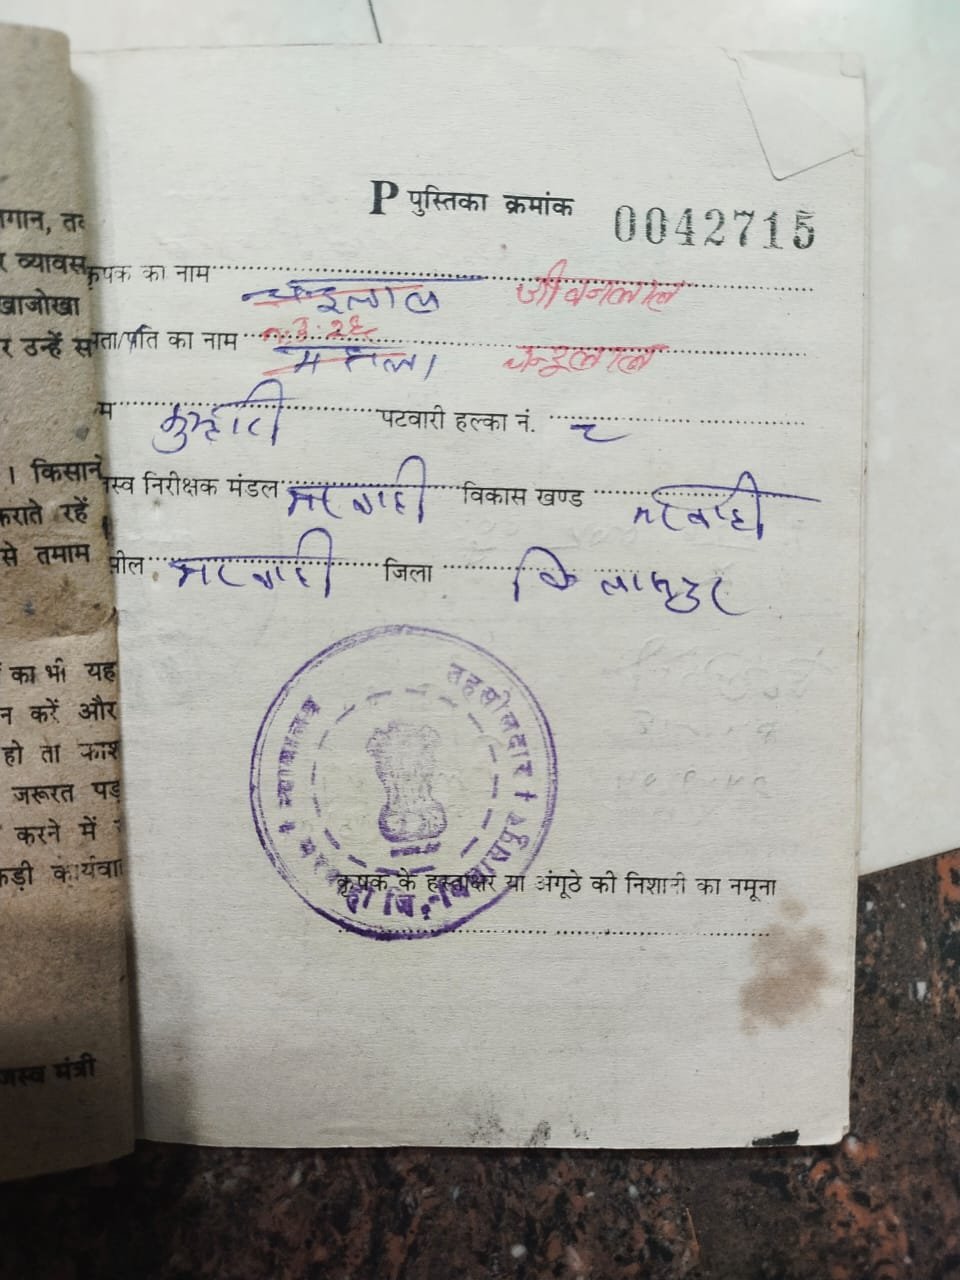 गान, तथ
र व्यावस
खाजोखा
र उन्हें स
। किसान
कराते रहें
से तमाम
का भी यह
न करें और
हो ता काश
जरूरत पड़
करने में
कड़ी कार्यवा
जस्व मंत्री
P पुस्तिका क्रमांक 0042715
कृषक का नाम चन्दुलाल जीवनलाल
ता/पति का नाम चन्दुलाल
म कुम्हारी पटवारी हल्का नं.
स्व निरीक्षक मंडल मरवाही विकास खण्ड मरवाही
सील मरवाही जिला बिलासपुर
न्यायालय तहसीलदार मरवाही जि. बिलासपुर
कृषक के हस्ताक्षर या अंगूठे की निशानी का नमूना